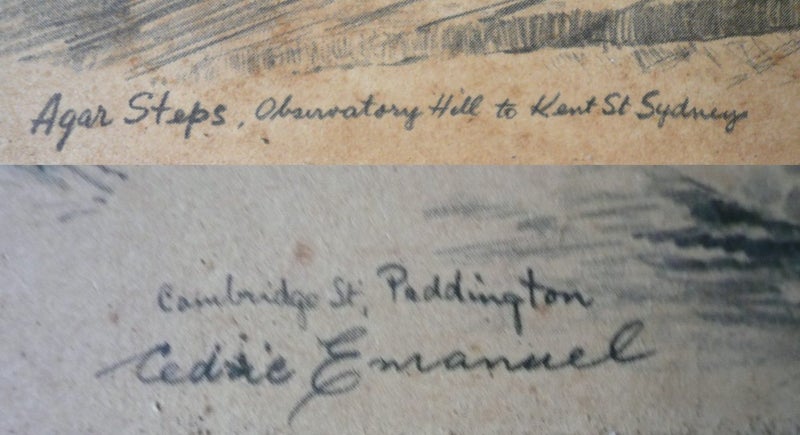 Agar Steps, Observatory Hill to Kent St Sydney
Cambridge St, Paddington
Cedric Emanuel